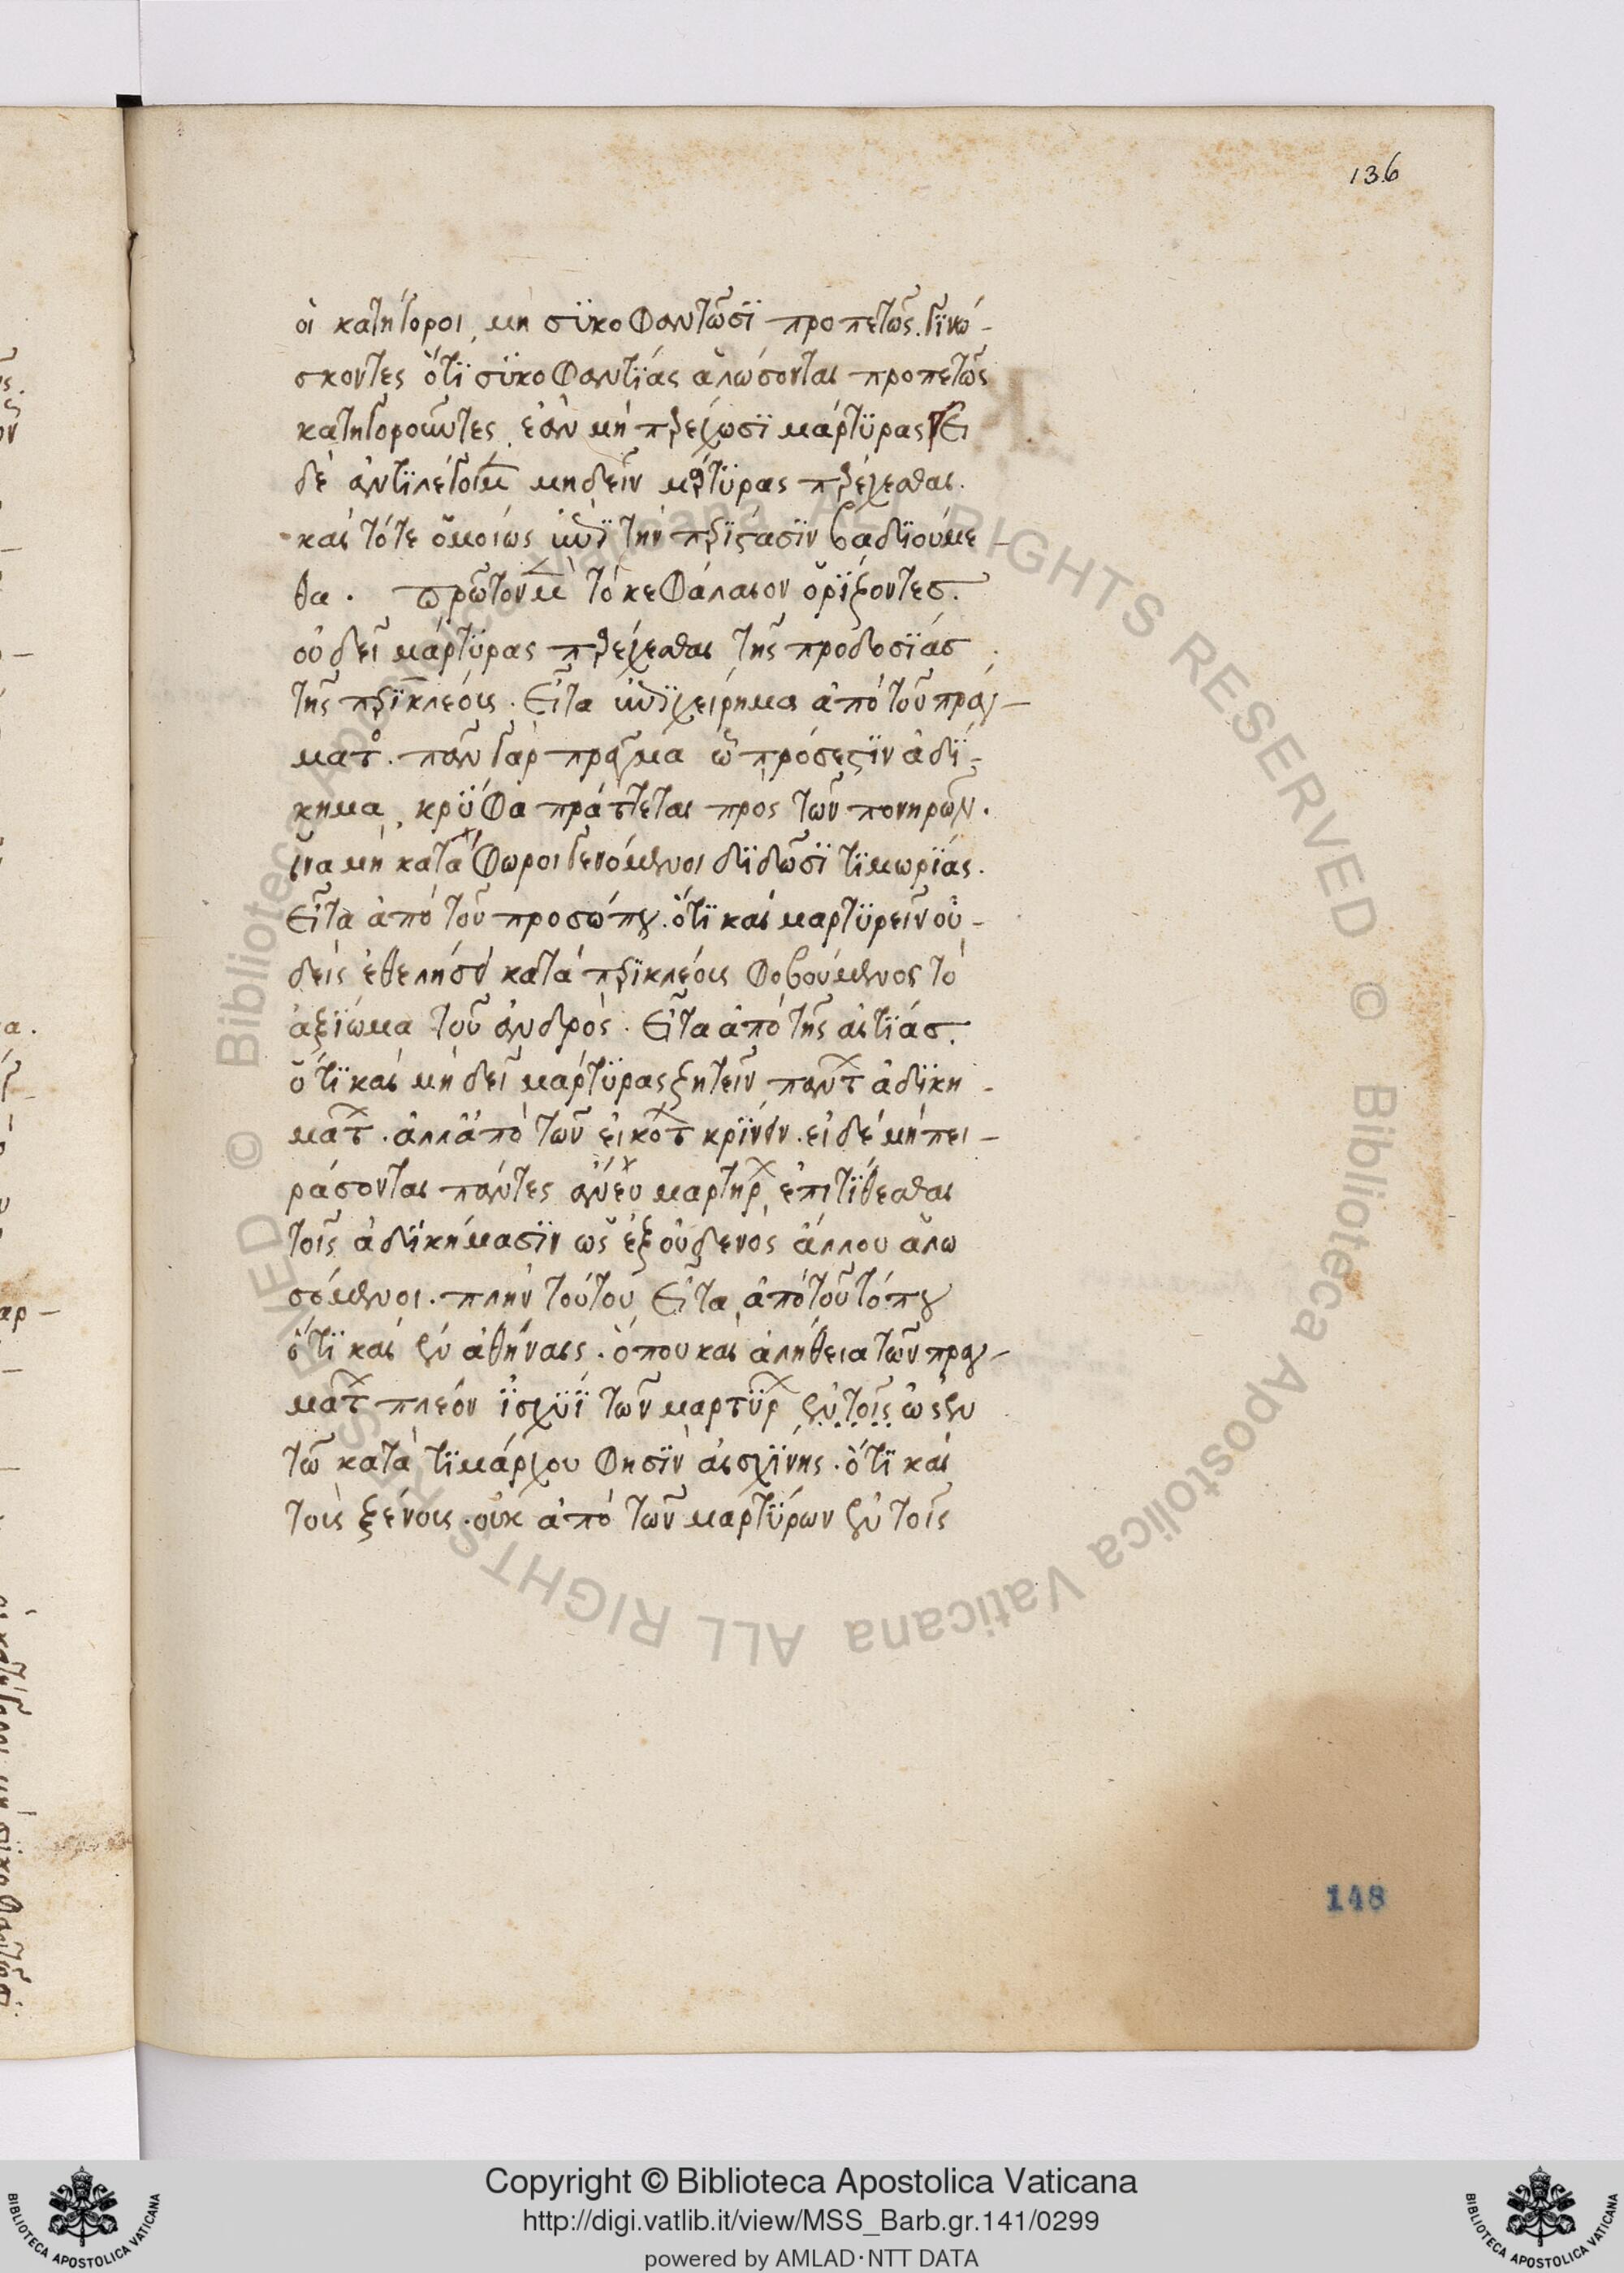 136
οἱ κατήγοροι, μὴ συκοφαντῶσι προπετῶς. γινώ-
σκοντες ὅτι συκοφαντίας ἁλώσονται προπετῶς
κατηγοροῦντες, ἐὰν μὴ παρέχωσι μάρτυρας. Εἰ
δὲ ἀντιλέγοιμεν μηδεῖν μάρτυρας παρέχεσθαι.
καὶ τότε ὁμοίως ἐπὶ τὴν περίστασιν βαδιούμε-
θα. πρῶτον μὲν τὸ κεφάλαιον ὁρίζοντες.
οὐ δεῖ μάρτυρας παρέχεσθαι τῆς προδοσίας
τῆς περικλέους. Εἶτα ἐπιχείρημα ἀπὸ τοῦ πράγ-
ματος. πᾶν γὰρ πρᾶγμα ὧ πρόσεστιν ἀδί-
κημα, κρύφα πράττεται πρὸς τῶν πονηρῶν.
ἵνα μὴ κατάφωροι γενόμενοι διδῶσι τιμωρίας.
Εἶτα ἀπὸ τοῦ προσώπου. ὅτι καὶ μαρτυρεῖν οὐ-
δεὶς ἐθέλησεν κατὰ περικλέους φοβούμενος τὸ
ἀξίωμα τοῦ ἀνδρός. Εἶτα ἀπὸ τῆς αἰτίας.
ὅτι καὶ μὴ δεῖ μάρτυρας ζητεῖν πάντων ἀδικη-
μάτων. ἀλλ' ἀπὸ τῶν εἰκότων κρίνειν. εἰ δὲ μὴ πει-
ράσονται πάντες ἄνευ μαρτήρων, ἐπιτίθεσθαι
τοῖς ἀδικήμασιν ὡς ἐξ οὐδενὸς ἄλλου ἁλω
σόμενοι. πλὴν τούτου Εἶτα, ἀπὸ τοῦ τόπου
ὅτι καὶ ἐν ἀθήναις. ὅπου καὶ ἀλήθεια τῶν πραγ-
μάτων πλέον ἰσχύϊ τῶν μαρτύρων ἐν τοῖς ὡς ἐν
τῶ κατὰ τιμάρχου φησὶν αἰσχίνης. ὅτι καὶ
τοῖς ξένοις. οὐκ ἀπὸ τῶν μαρτύρων ἐν τοῖς
148
© Biblioteca Apostolica Vaticana ALL RIGHTS RESERVED © Biblioteca Apostolica Vaticana ALL RIGHTS RESERVED
Copyright © Biblioteca Apostolica Vaticana
http://digi.vatlib.it/view/MSS_Barb.gr.141/0299
powered by AMLAD·NTT DATA
BIBLIOTECA APOSTOLICA VATICANA
BIBLIOTECA APOSTOLICA VATICANA